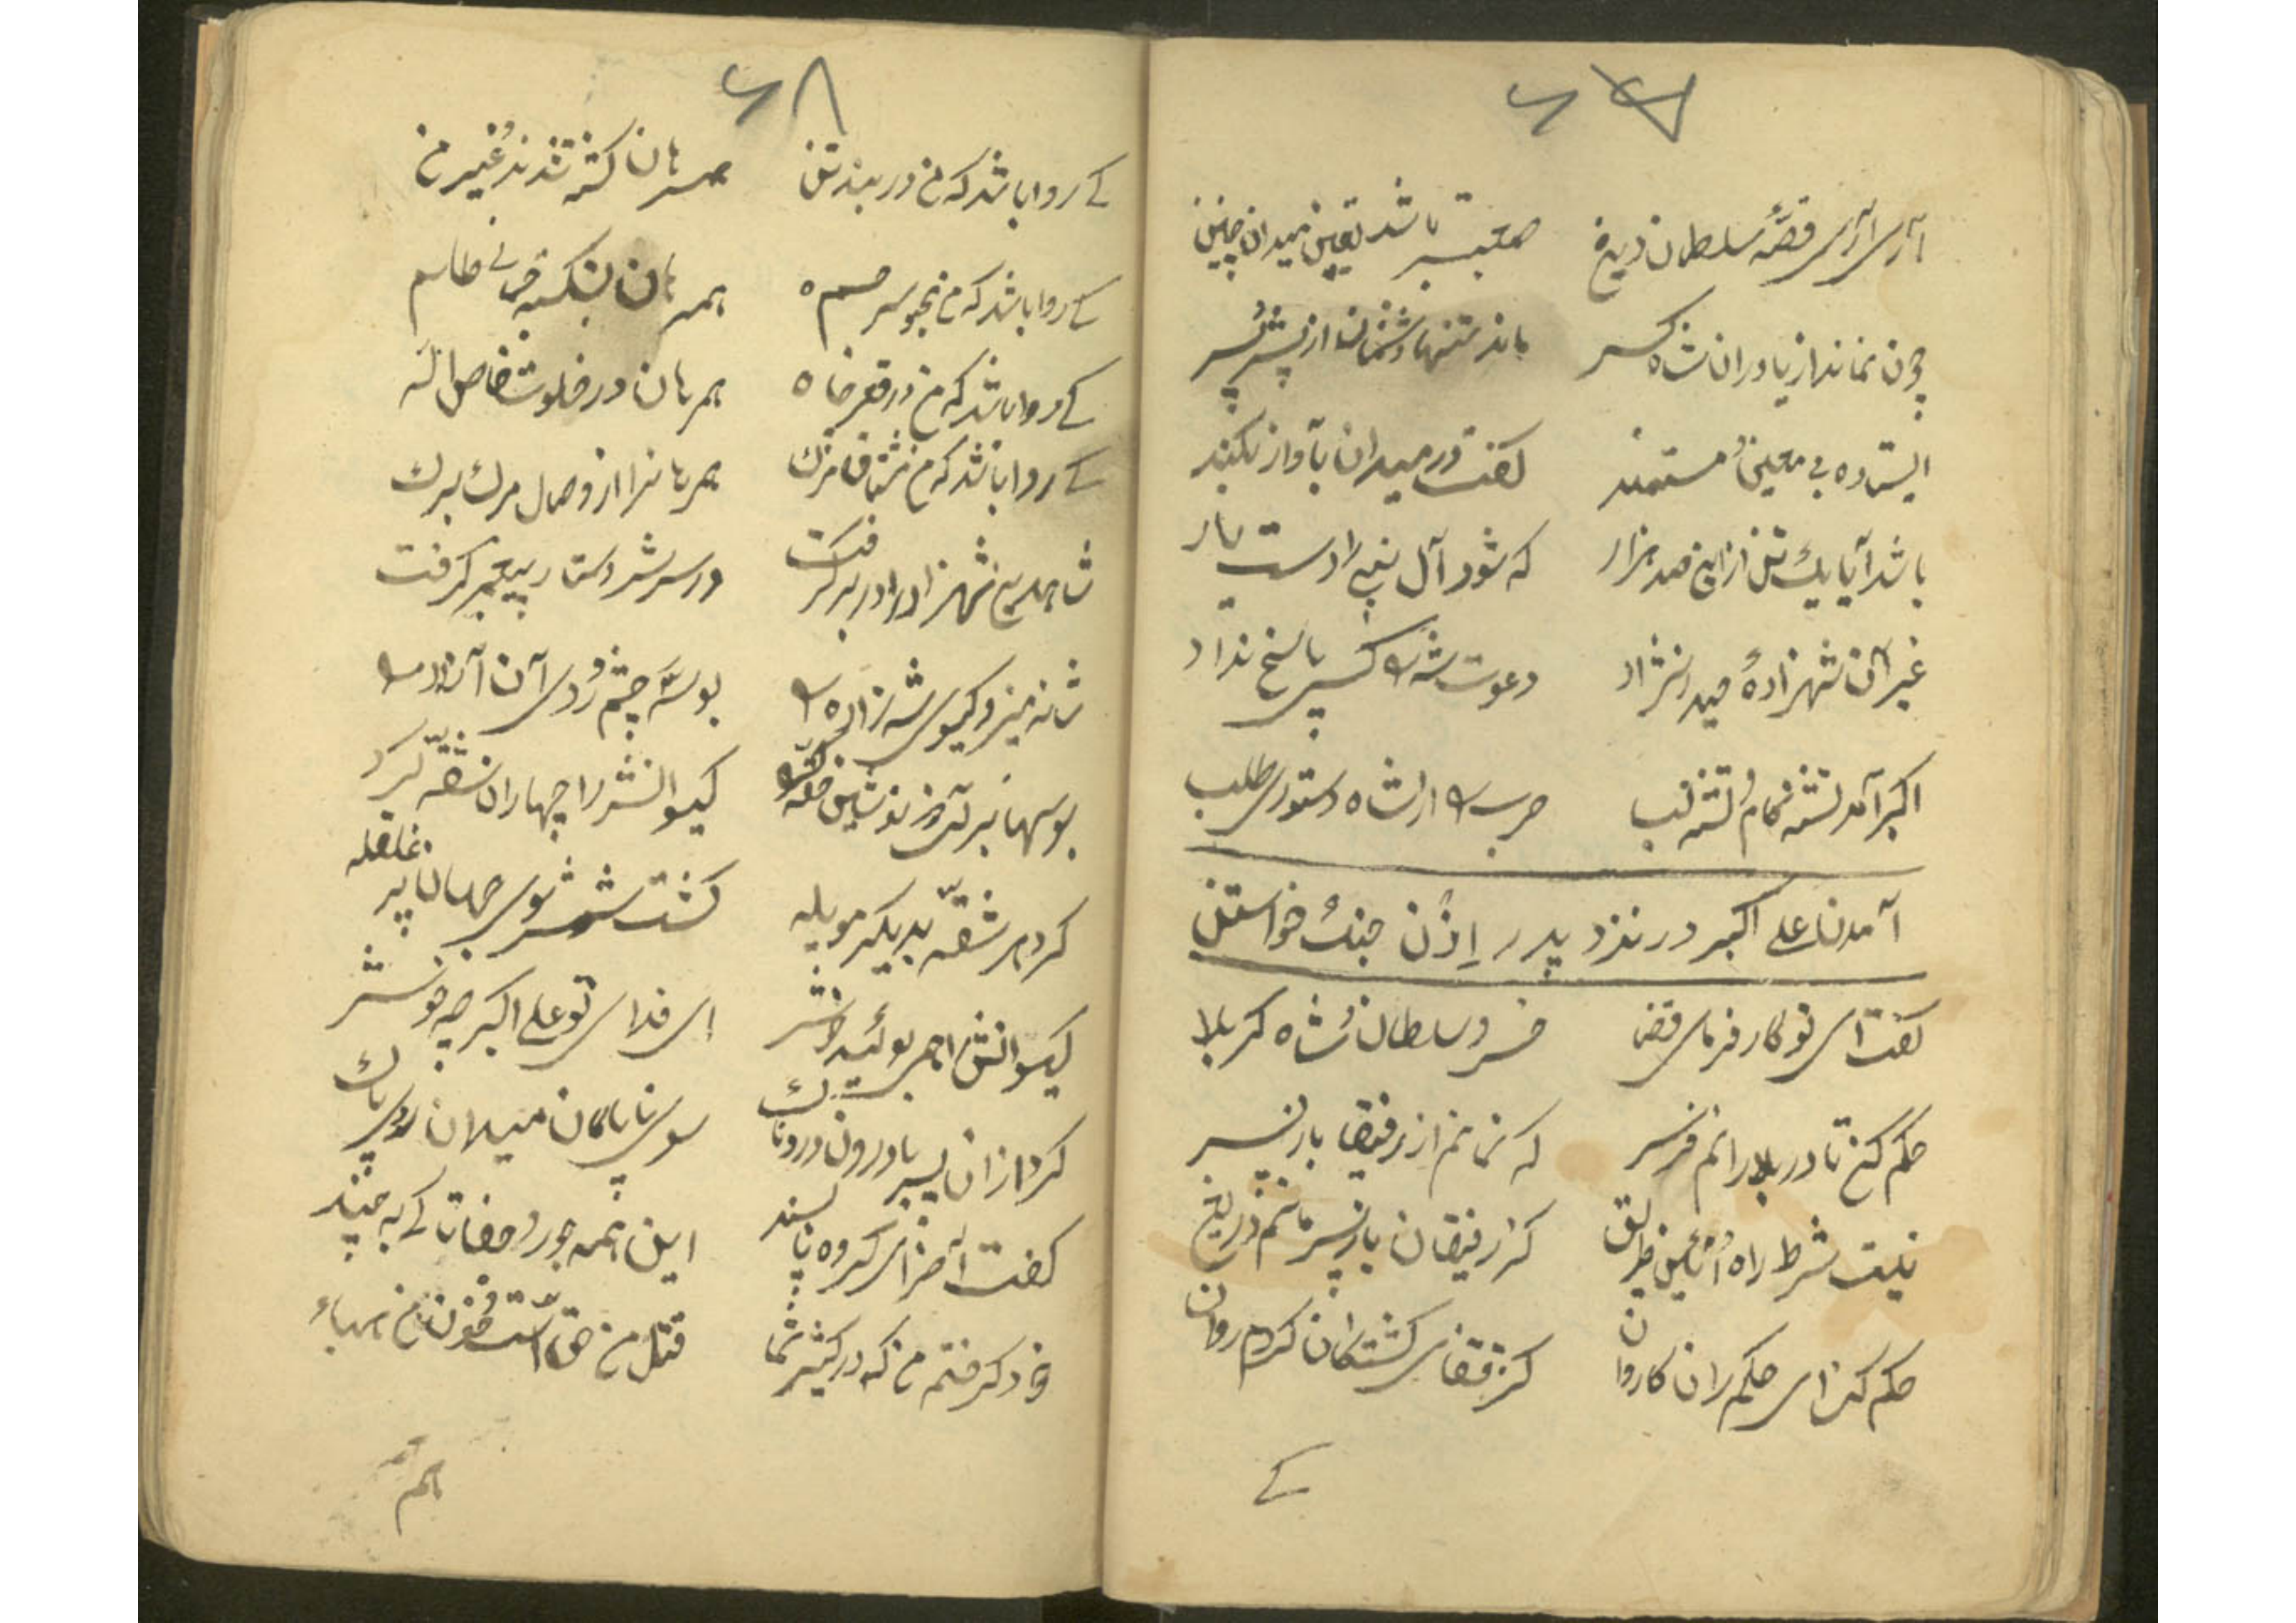 آری آری قصهٔ سلطان دین معتبر باشد یقین میدان چنین
چون نماند از یاوران شاه کس ماند تنها دشمنان از پیش و پس
ایستاده بی معین مستمند گفت در میدان بآواز بلند
باشد آیا یک تن از این صد هزار که شود آل نبی را دستیار
غیر آن شهزادهٔ حیدر نژاد دعوت شه را کسی پاسخ نداد
اکبر آمد تشنه کام و تشنه لب حرب را از شاه دستوری طلب
آمدن علی اکبر در نزد پدر اِذن جنگ خواستن
گفت ای تو کارفرمای قضا خسرو سلطان شاه کربلا
حکم کن تا در بلا رانم فرس که نمانم از رفیقان باز پس
نیست شرط راه و آئین طریق کز رفیقان باز پس مانم
حکم کن ای حکم ران کاروان کز قفای کشتگان گردم روان
کے
۶۸
کے روا باشد که من در بند تن همرهان کشته شدند غیر من
کے روا باشد که من محبوس جسم همرهان بشکسته
کے روا باشد که من در قعر چاه همرهان در خلوت خاص اله
کے روا باشد که من مشتاق مرگ همرهانرا از وصال مرگ برگ
شاه دین شهزاده را در بر گرفت در سرش دستار پیغمبر گرفت
شانه میزد گیسوی شهزاده را بوسه چشم و روی آن آزاده را
بوسها بر آن گیسوانش را چهاران شقه کرد
کرد هر شقه بدیگر مو یله گشت شش سوی جهان پر غلغله
گیسوانش را همی بوئید ای فدای تو علی اکبر چه خوش
کرد از آن پس سوی ناپاکان میدان روی پاک
گفت آخر ای گروه ناپسند این همه جور و جفا تا کے به چند
خود گرفتم من که در کیش شما قتل من حق است و خون من هباء
هم